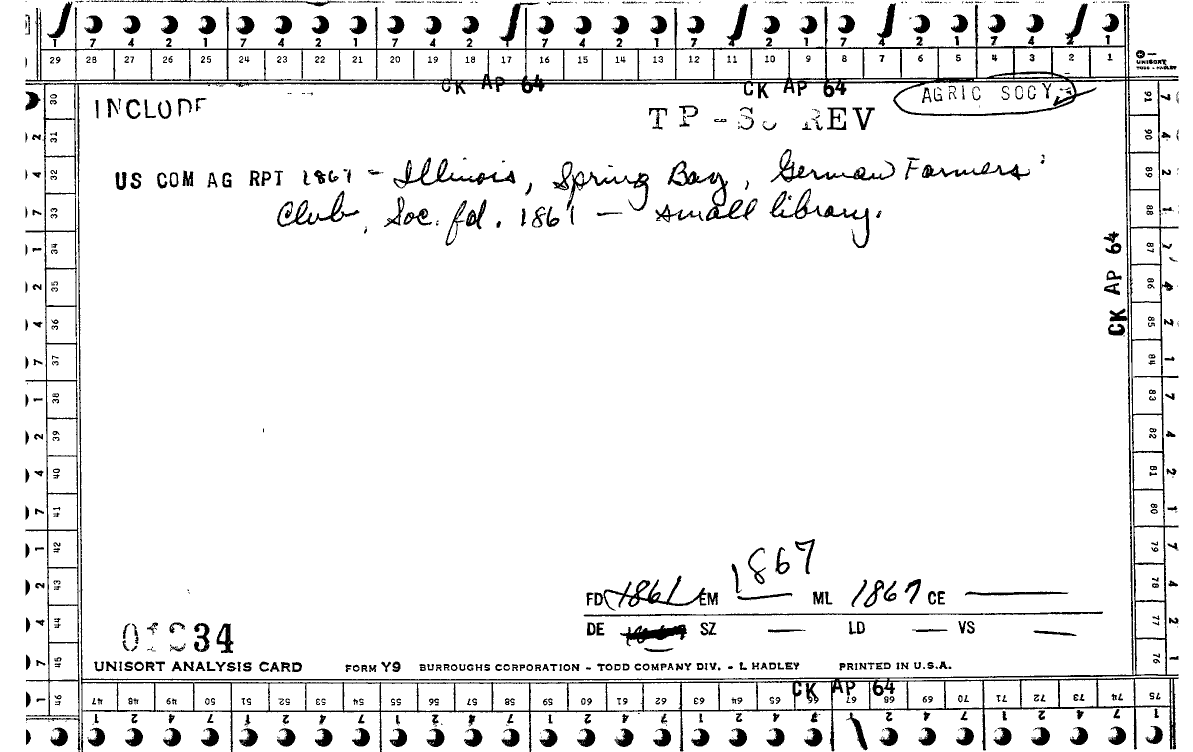 7 4 2 1 7 4 2 1 7 4 2 1 7 4 2 1 7 4 2 1 7 4 2 1 7 4 2 1
29 28 27 26 25 24 23 22 21 20 19 18 17 16 15 14 13 12 11 10 9 8 7 6 5 4 3 2 1
UNISORT
TODD - HADLEY
CK AP 64 CK AP 64
INCLUDE TP - REV AGRIC SOCY
US COM AG RPT 1867 - Illinois, Spring Bay, German Farmers'
Club, Soc. fd. 1861 — small library.
CK AP 64
30 31 32 33 34 35 36 37 38 39 40 41 42 43 44 45 46
91 90 89 88 87 86 85 84 83 82 81 80 79 78 77 76
FD 1861 EM 1867 ML 1867 CE —
DE SZ — LD — VS —
34
UNISORT ANALYSIS CARD FORM Y9 BURROUGHS CORPORATION - TODD COMPANY DIV. - L HADLEY PRINTED IN U.S.A.
CK AP 64
47 48 49 50 51 52 53 54 55 56 57 58 59 60 61 62 63 64 65 66 67 68 69 70 71 72 73 74 75